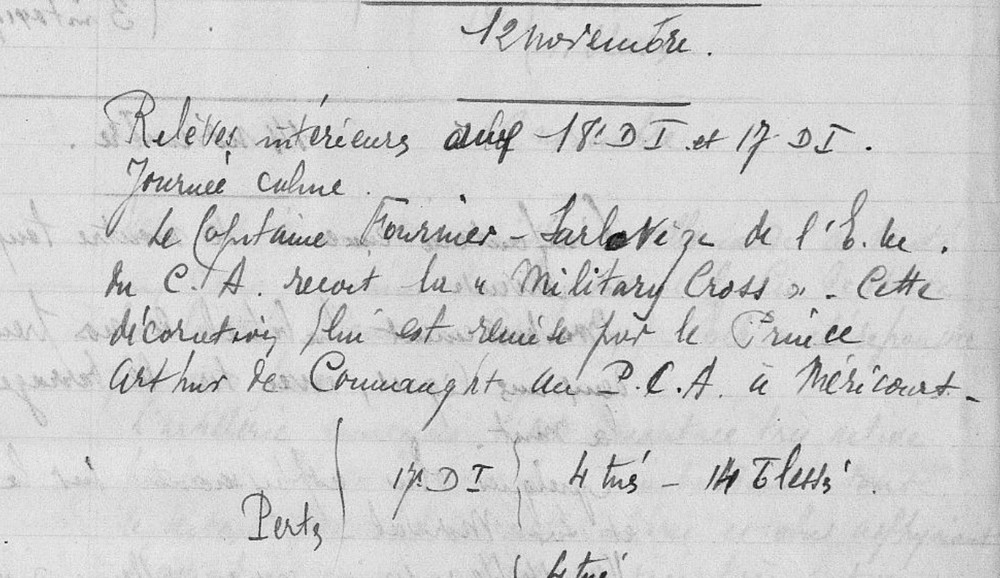 12 novembre.
Relèves intérieures aux 18e D I et 17 D I.
Journée calme.
Le Capitaine Fournier-Sarlovèze de l'E. M.
du C. A. reçoit la « Military Cross ». Cette
décoration lui est remise par le Prince
Arthur de Connaught au P. C. A. à Méricourt.
17e D I 4 tués - 14 blessés.
Pertes
4 tués